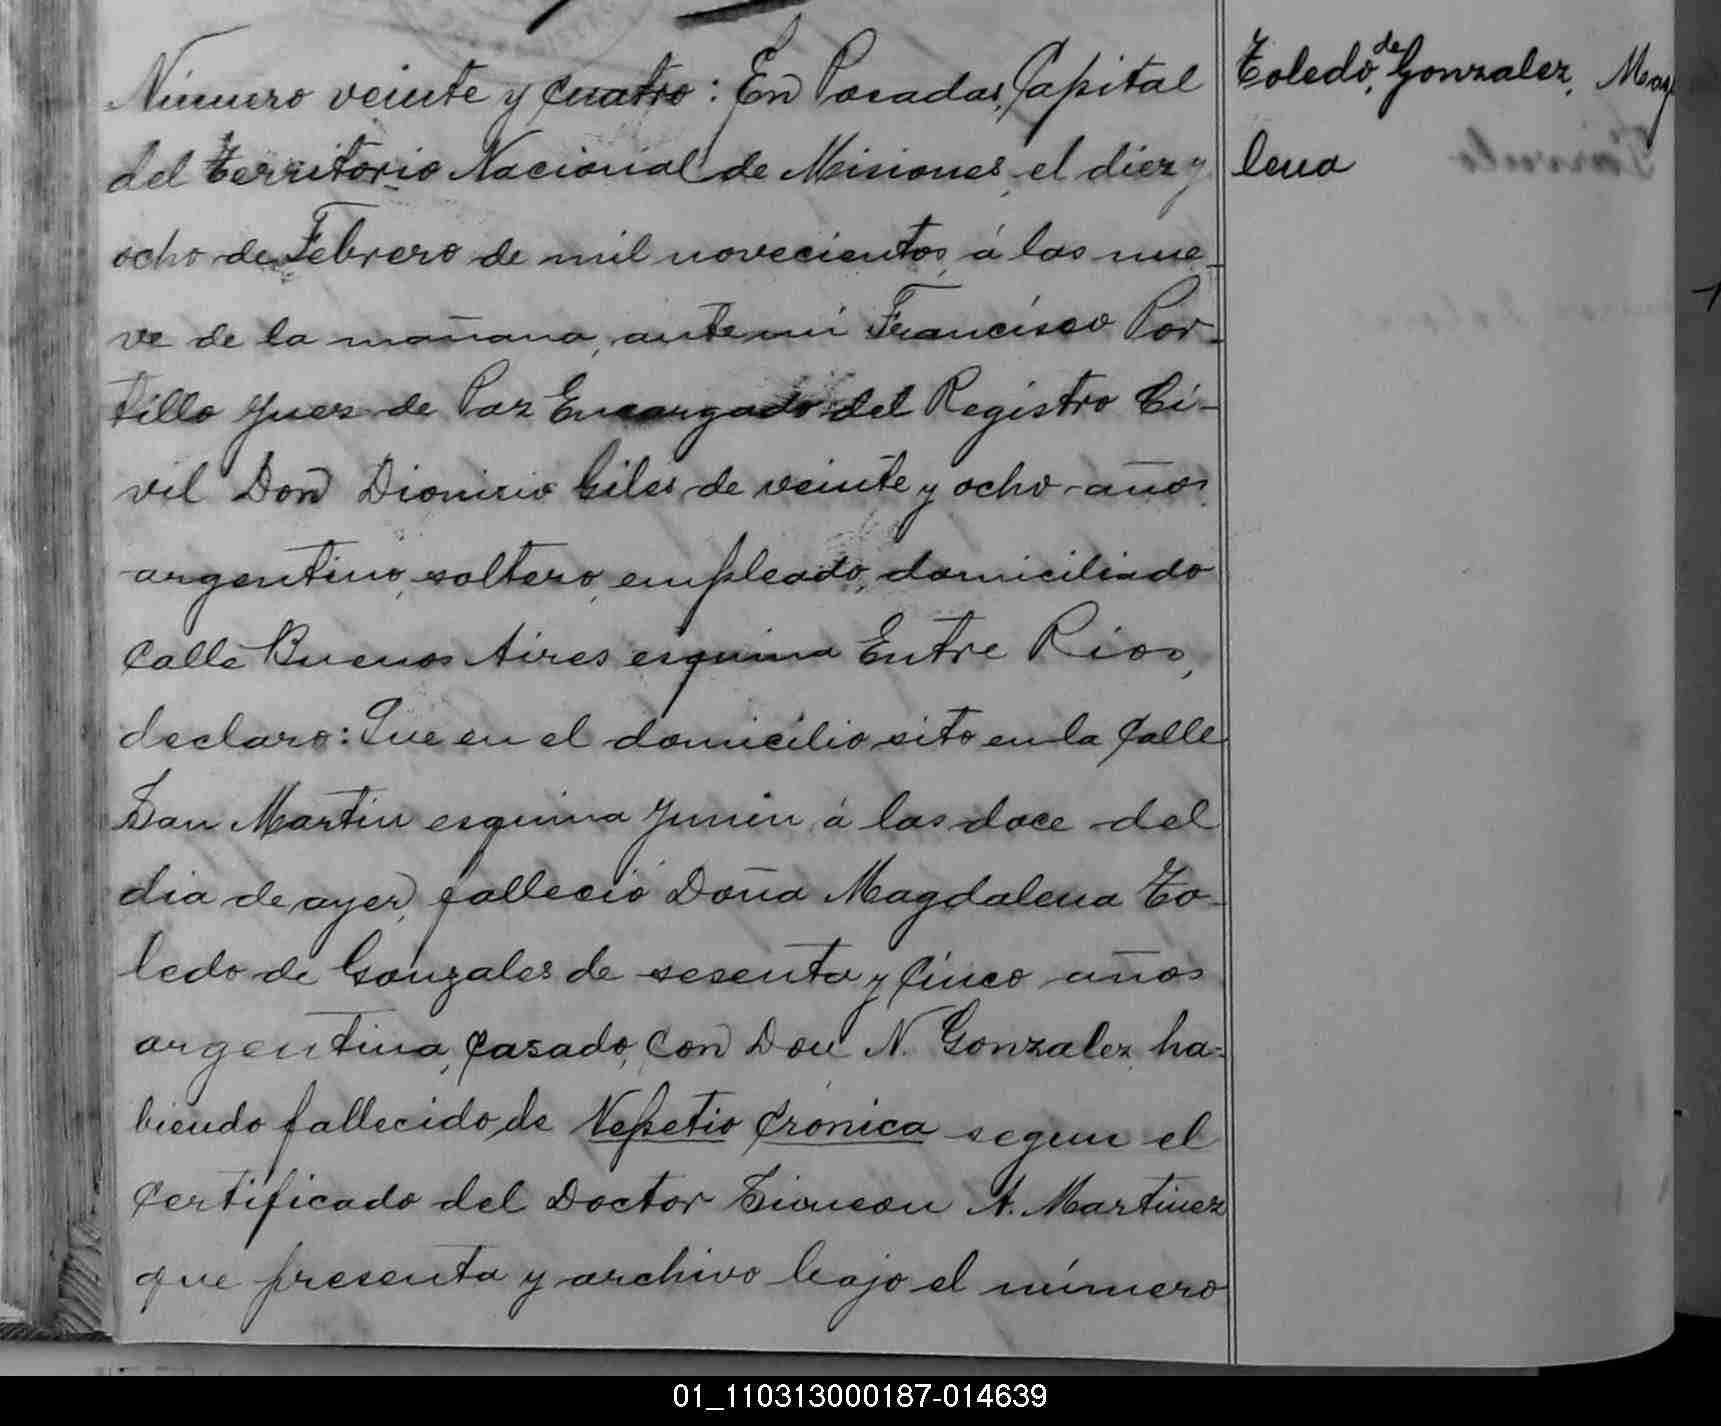 Número veinte y cuatro: En Posadas, Capital
del Territorio Nacional de Misiones, el diez y
ocho de Febrero de mil novecientos, á las nue-
ve de la mañana, ante mi Francisco Por-
tillo Juez de Paz Encargado del Registro Ci-
vil Don Dionisio Giles de veinte y ocho años
argentino, soltero, empleado, domiciliado
Calle Buenos Aires esquina Entre Rios,
declaro: Que en el domicilio sito en la Calle
San Martin esquina Junin, á las doce del
dia de ayer, falleció Doña Magdalena To-
ledo de Gonzales de sesenta y cinco años
argentina, casado, con Don N. Gonzalez, ha-
biendo fallecido de Nepetio Crónica segun el
Certificado del Doctor Simeon A. Martinez
que presenta y archivo bajo el número
Toledo, de Gonzalez, Mag
lena
01_110313000187-014639